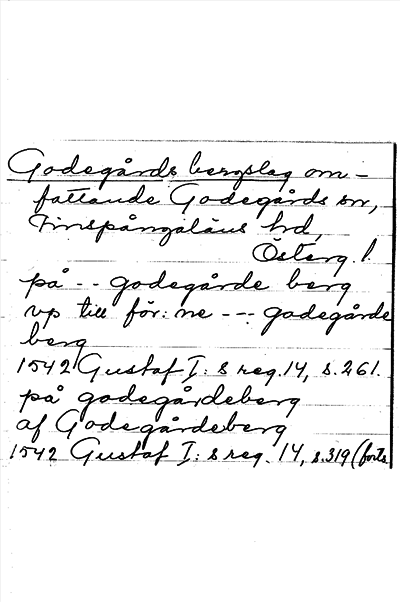 Godegårds bergslag om-
fattande Godegårds sn,
Finspångaläns hd,
Österg. l.
på - - godegårde berg
vp till för: ne - - - godegårde
berg
1542 Gustaf I: s reg. 14, s. 261.
på godegårdeberg
af Godegårdeberg
1542 Gustaf I: s reg. 14, s. 319 (forts